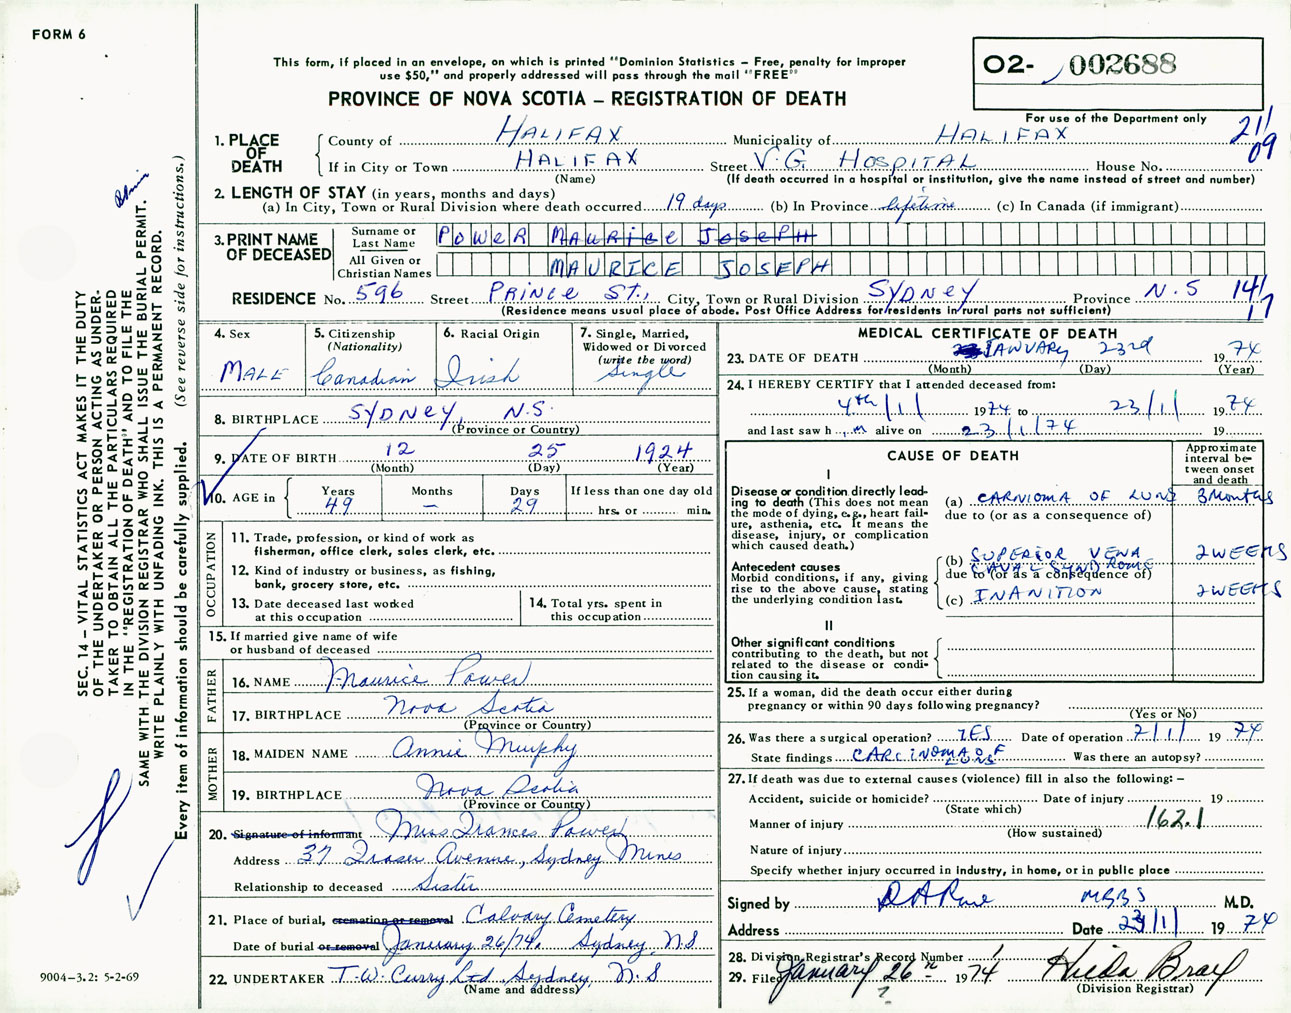 FORM 6
This form, if placed in an envelope, on which is printed "Dominion Statistics – Free, penalty for improper
use $50," and properly addressed will pass through the mail "FREE"
PROVINCE OF NOVA SCOTIA – REGISTRATION OF DEATH
02- 002688
For use of the Department only
21/
09
1. PLACE OF DEATH
County of HALIFAX Municipality of HALIFAX
If in City or Town HALIFAX Street V.G. HOSPITAL House No.
(Name) (If death occurred in a hospital or institution, give the name instead of street and number)
2. LENGTH OF STAY (in years, months and days)
(a) In City, Town or Rural Division where death occurred 19 days (b) In Province lifetime (c) In Canada (if immigrant)
3. PRINT NAME OF DECEASED
Surname or Last Name POWER MAURICE JOSEPH
All Given or Christian Names MAURICE JOSEPH
RESIDENCE No. 596 Street PRINCE ST., City, Town or Rural Division SYDNEY Province N.S 14/
17
(Residence means usual place of abode. Post Office Address for residents in rural parts not sufficient)
4. Sex
MALE
5. Citizenship
(Nationality)
Canadian
6. Racial Origin
Irish
7. Single, Married,
Widowed or Divorced
(write the word)
Single
8. BIRTHPLACE SYDNEY, N.S.
(Province or Country)
9. DATE OF BIRTH 12 25 1924
(Month) (Day) (Year)
10. AGE in
Years Months Days If less than one day old
49 – 29 hrs. or min.
OCCUPATION
11. Trade, profession, or kind of work as
fisherman, office clerk, sales clerk, etc.
12. Kind of industry or business, as fishing,
bank, grocery store, etc.
13. Date deceased last worked
at this occupation
14. Total yrs. spent in
this occupation
15. If married give name of wife
or husband of deceased
FATHER
16. NAME Maurice Power
17. BIRTHPLACE Nova Scotia
(Province or Country)
MOTHER
18. MAIDEN NAME Annie Murphy
19. BIRTHPLACE Nova Scotia
(Province or Country)
20. Signature of informant Miss Frances Power
Address 37 Fraser Avenue, Sydney Mines
Relationship to deceased Sister
21. Place of burial, cremation or removal Calvary Cemetery
Date of burial or removal January 26/74. Sydney, N.S
22. UNDERTAKER T.W. Curry Ltd, Sydney, N.S
(Name and address)
MEDICAL CERTIFICATE OF DEATH
23. DATE OF DEATH JANUARY 23rd 1974
(Month) (Day) (Year)
24. I HEREBY CERTIFY that I attended deceased from:
4th/1/ 1974 to 23/1/ 1974
and last saw h im alive on 23/1/74 19
CAUSE OF DEATH
Approximate
interval be-
tween onset
and death
I
Disease or condition directly lead-
ing to death (This does not mean
the mode of dying, e.g., heart fail-
ure, asthenia, etc. It means the
disease, injury, or complication
which caused death.)
(a) CARNIOMA OF LUNG 3 MONTHS
due to (or as a consequence of)
Antecedent causes
Morbid conditions, if any, giving
rise to the above cause, stating
the underlying condition last.
(b) SUPERIOR VENA 2 WEEKS
CAVAL SYNDROME
due to (or as a consequence of)
(c) INANITION 2 WEEKS
II
Other significant conditions
contributing to the death, but not
related to the disease or condi-
tion causing it.
25. If a woman, did the death occur either during
pregnancy or within 90 days following pregnancy?
(Yes or No)
26. Was there a surgical operation? YES Date of operation 7/1/ 1974
State findings CARCINOMA OF Was there an autopsy?
LUNG
27. If death was due to external causes (violence) fill in also the following: –
Accident, suicide or homicide? Date of injury 19
(State which)
Manner of injury 162.1
(How sustained)
Nature of injury
Specify whether injury occurred in industry, in home, or in public place
Signed by MBBS M.D.
Address Date 23/1/ 1974
28. Division Registrar's Record Number
29. Filed January 26th 1974 Hilda Bray
(Division Registrar)
SEC. 14 – VITAL STATISTICS ACT MAKES IT THE DUTY
OF THE UNDERTAKER OR PERSON ACTING AS UNDER-
TAKER TO OBTAIN ALL THE PARTICULARS REQUIRED
IN THE "REGISTRATION OF DEATH" AND TO FILE THE
SAME WITH THE DIVISION REGISTRAR WHO SHALL ISSUE THE BURIAL PERMIT.
WRITE PLAINLY WITH UNFADING INK. THIS IS A PERMANENT RECORD.
Every item of information should be carefully supplied. (See reverse side for instructions.)
9004-3.2: 5-2-69